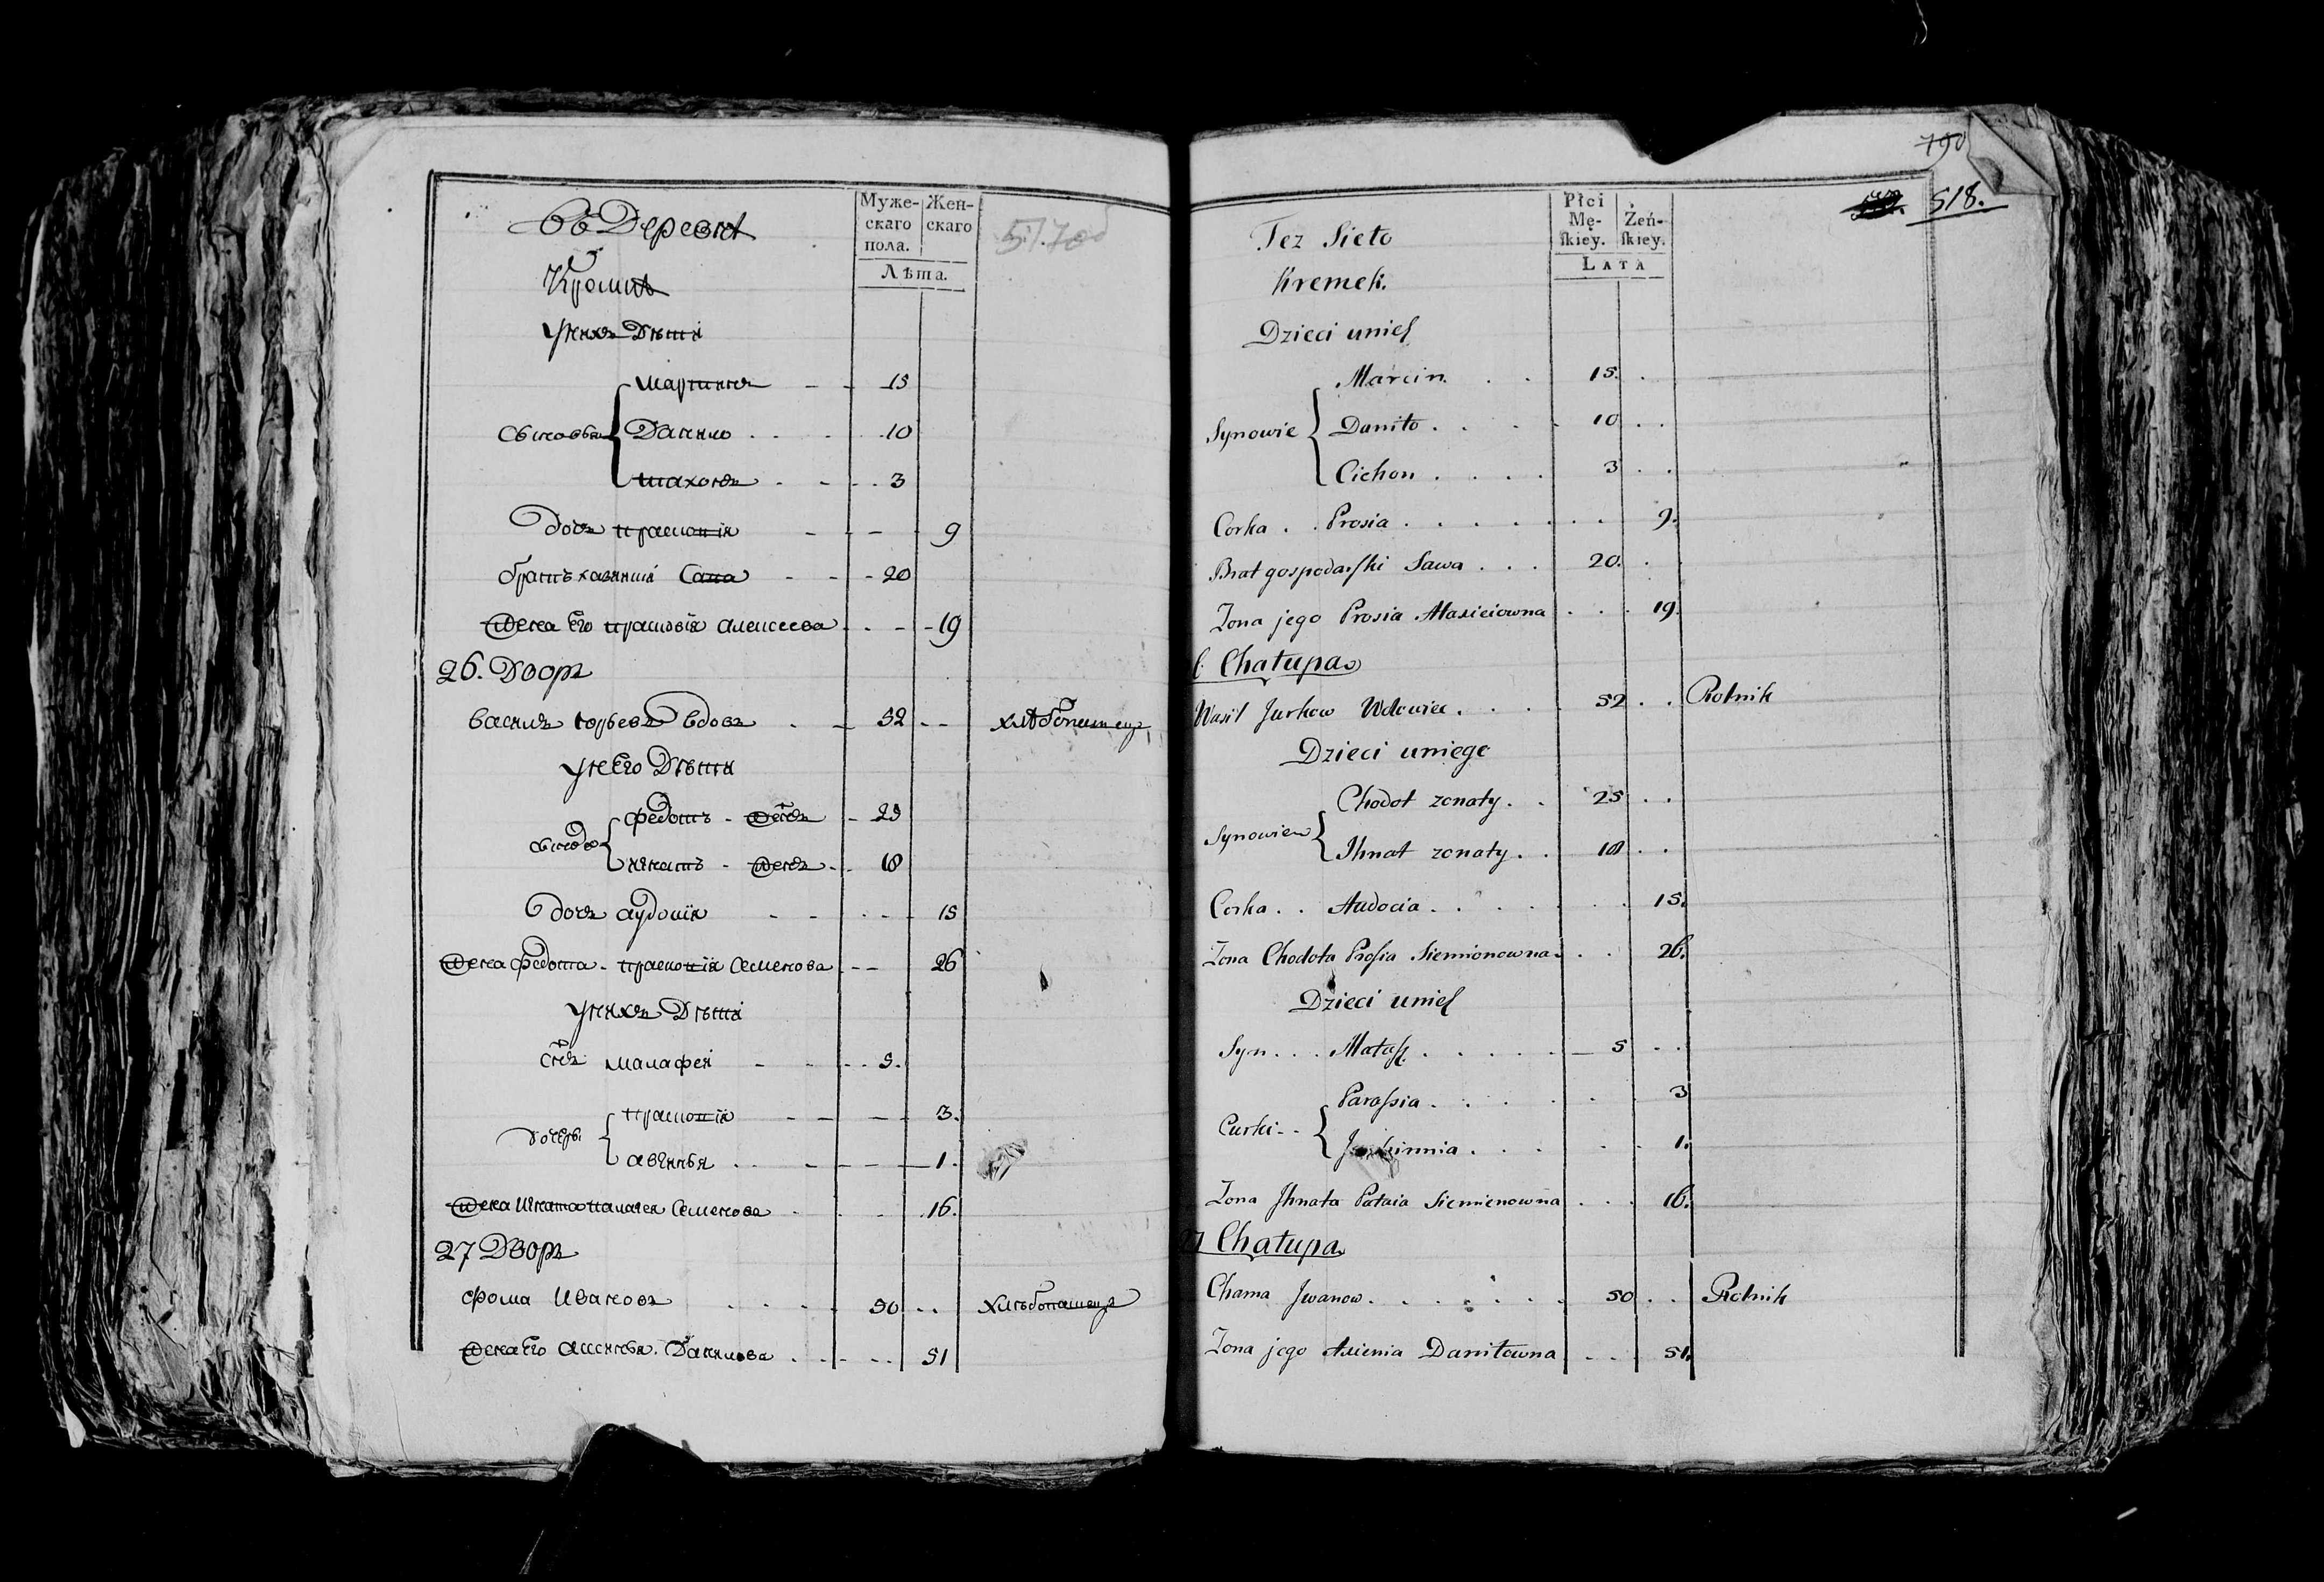 въ Деревнѣ
Муже-
скаго
пола.
Жен-
скаго
Лѣта.
уних Дѣти
Мартинъ 15
Сыновья Данило 10
Тихонъ 3
Дочь Прасковія 9
братъ хозяинa Сава 20
Жена Его Прасковія Алексеева 19
26. Дворъ
Василь Юрьевъ вдовъ 52 хлѣбопашецъ
унего Дѣти
Федотъ - Жен 25
Игнатъ - Жен 18
Дочь Аудоція 15
Жена Федота Прасковія Семенова 26
уних Дѣти
Сынъ Малафей 5.
Дочери Прасковія 3.
1.
Жена Игната Палагея Семенова 16.
27 Дворъ
Фома Ивановъ 50 Хлѣбопашецъ
Жена Его Ксенья Данилова 51
790
518.
Tez Sieło
Płci
Mę-
skiey.
Żeń-
skiey.
LATA
Kremek.
Dzieci unich
Marcin 15.
Synowie Daniło 10
Cichon 3
Corka Prosia 9.
Brat gospodarski Sawa 20.
Zona jego Prosia Alaxieiowna 19.
6 Chałupa
Wasil Jurkow Wdowiec 52 Rolnik
Dzieci uniego
Chodot zonaty 25
Synowie
Ihnat zonaty 18
Corka Audocia 15.
Zona Chodota Prosia Siemionowna 26.
Dzieci unich
Syn Matafiy 5
Parassia 3
Curki
1.
Zona Ihnata Pałaia Siemienowna 16.
27 Chałupa
Chama Jwanow 50 Rolnik
Zona jego Axienia Daniłowna 51.